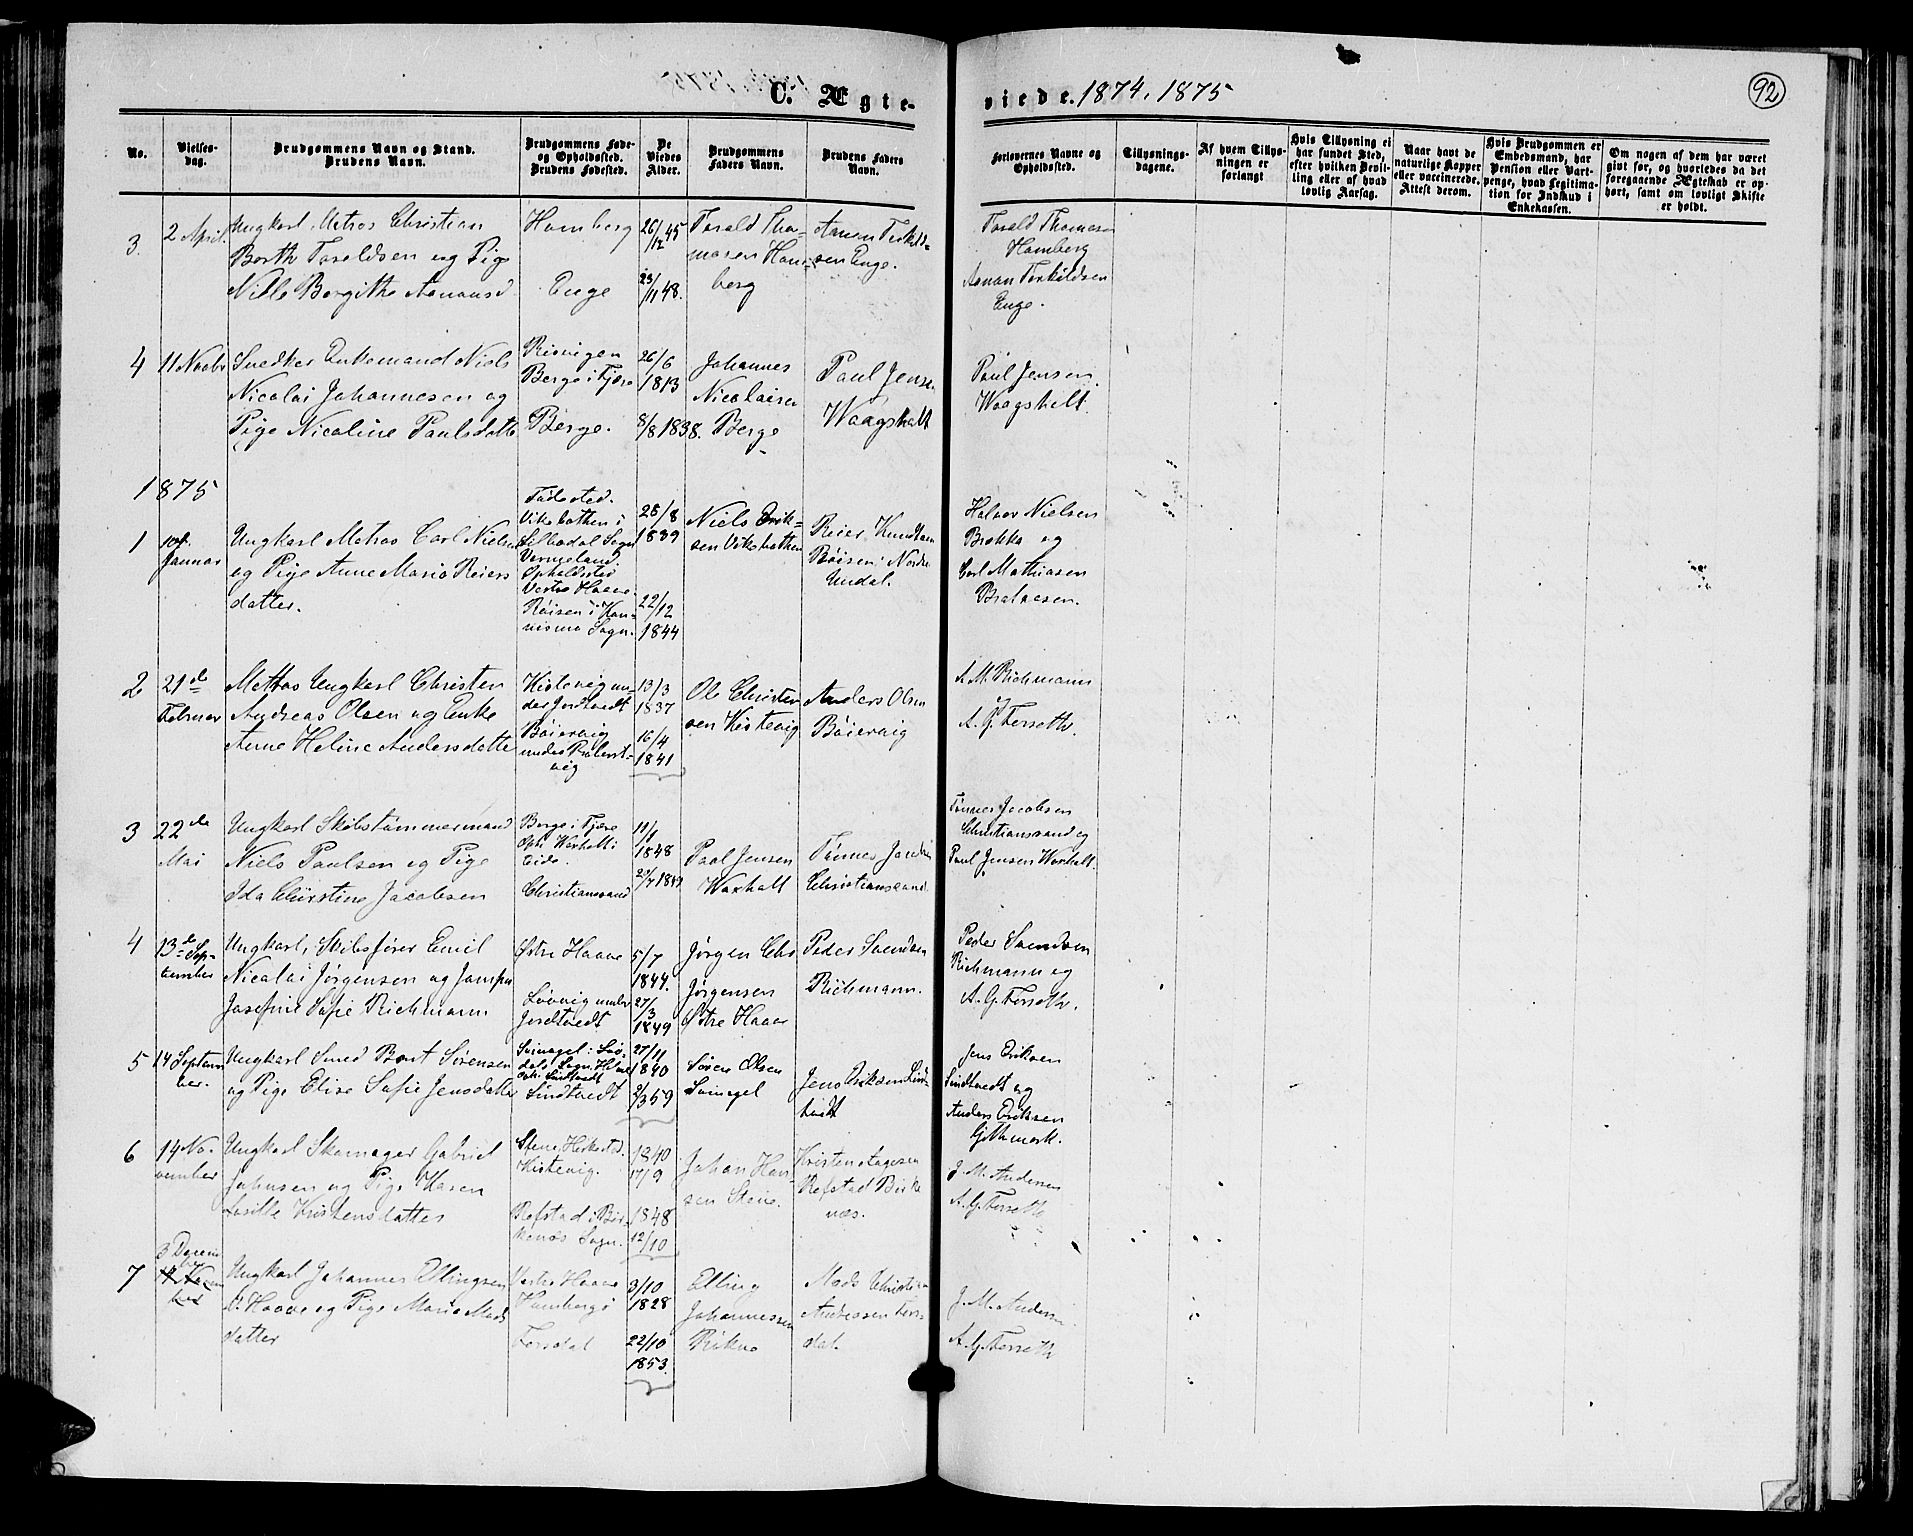 C. Ægte-
viede. 1874, 1875
92
No.
Vielses-
dag.
Brudgommens Navn og Stand.
Brudens Navn.
Brudgommens Føde-
og Opholdssted.
Brudens Fødested.
De
Viedes
Alder.
Brudgommens
Faders Navn.
Brudens Faders
Navn.
Forlovernes Navne og
Opholdssted.
Tillysnings-
dagene.
Af hvem Tillys-
ningen er
forlangt
Hvis Tillysning ei
har fundet Sted,
efter hvilken Bevil-
ling eller af hvad
lovlig Aarsag.
Naar havt de
naturlige Kopper
eller vaccinerede.
Attest derom.
Hvis Brudgommen er
Embedsmand, har
Pension eller Vart-
penge, hvad Legitima-
tion for Indskud i
Enkekassen.
Om nogen af dem har været
gift før, og hvorledes da det
foregaaende Ægteskab er op-
hørt, samt om lovligt Skifte
er holdt.
3.
2 April.
Ungkarl, Matros Christian
Berth Taraldsen og Pige
Nille Bergithe Aanansd.
Hamberg
Enge
26/12 45
23/11 48.
Tarald Tho-
masen Ham-
berg
Aanen Terkild-
sen Enge.
Tarald Thomasen
Hamberg
Aanan Terkildsen
Enge.
4
11 Novbr
Snedker Enkemand Niels
Nicolai Johannesen og
Pige Nicoline Paulsdatte
Risvigen
Berge i Fjære
Berge.
26/6
1813
8/8 1838.
Johannes
Nicolaisen
Berge
Paul Jensen
Waagsholt
Paul Jensen
Waagsholt.
1875
1
Januar
Ungkarl Matros Carl Nielsen
og Pige Anne Maria Reiers
datter.
Fødested.
Vikebothen i
Silbodal Sogn
Vermeland.
Opholdssted
Vestre Haave.
Røisen i Hou-
nismo Sogn.
28/8
1839
22/12
1844
Niels Erik-
sen Vikebothen
Reier Knudsen
Røisen i Nordre
Undal.
Halvor Nielsen
Brekka og
Carl Mathiasen
2
21de
Februar
Matros Ungkarl Christen
Andreas Olsen og Enke
Anne Heline Andersdatte
Kistevig un-
der Jordtvedt
Bøiervig
under Roberst-
vig
13/3
1837
16/4
1841
Ole Christen
sen Kistevig
Anders Olsen
Bøiervig
A. M. Richmann
og
A. G. Forseth.
3
22de
Mai
Ungkarl Skibstømmermand
Niels Paulsen og Pige
Ida Christine Jacobsen
Berge i Fjære
Oph. Waxholt i
Eide.
Christianssand
1848
20/7 1849
Paul Jensen
Waxholt
Tønnes Jacobsen
Christianssand.
Tønnes Jacobsen
Christianssand og
Paul Jensen Waxholt.
4
13de Sep-
tember
Ungkarl, Skibsfører Emil
Nicolai Jørgensen og Jomfru
Josefine Sofie Richmann
Østre Haave
Løvvig under
Jordtvedt
5/7
1844.
27/3
1849
Jørgen Chr
Jørgensen
Østre Haave
Peder Svendsen
Richmann.
Peder Svendsen
Richmann og
A. G. Forseth.
5
14 Septem
ber.
Ungkarl Smed Bent Sørensen
og Pige Elise Sofie Jensdatter
Oph. Sindtvedt
Sindtvedt
27/11
1840
2/3 59
Søren Olsen
Svinagel
Jens Eriksen Sind-
tvedt
Jens Eriksen
Sindtvedt og
Anders Eriksen
6
14 No-
vember
Ungkarl Skomager Gabriel
Johnsen og Pige Karen
Lusille Kristensdatter
Stene, Herkested.
Kistevig.
Refstad i Bir-
kenes Sogn.
13/10
17/9
1848
12/10
Johan Han-
sen Stene.
Kristen Aagesen
Refstad Birke
næs.
J. M. Andersen
A. G. Forseth
7
3 Decem
ber
Ungkarl Johannes Ellingsen
V. Haave og Pige Marie Mads
datter
Vestre Haave
Forsdal
3/10
1828
22/10
1853.
Elling
Johannessen
Mads Christian
Andreassen Fors-
dal.
J. M. Andersen
A. G. Forseth